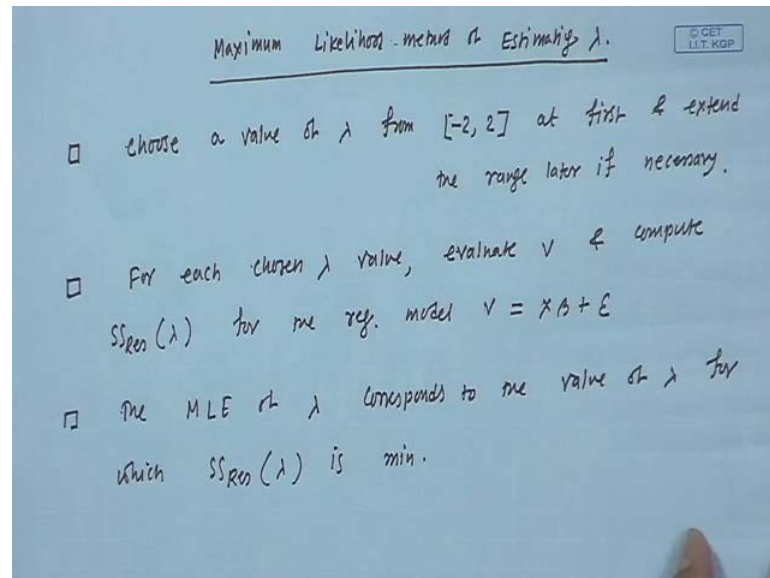 Maximum Likelihood method of Estimating λ.
© CET
I.I.T. KGP
□ choose a value of λ from [-2, 2] at first & extend
the range later if necessary.
□ For each chosen λ value, evaluate V & compute
SS_Res(λ) for the reg. model V = Xβ + ε
□ The MLE of λ corresponds to the value of λ for
which SS_Res(λ) is min.